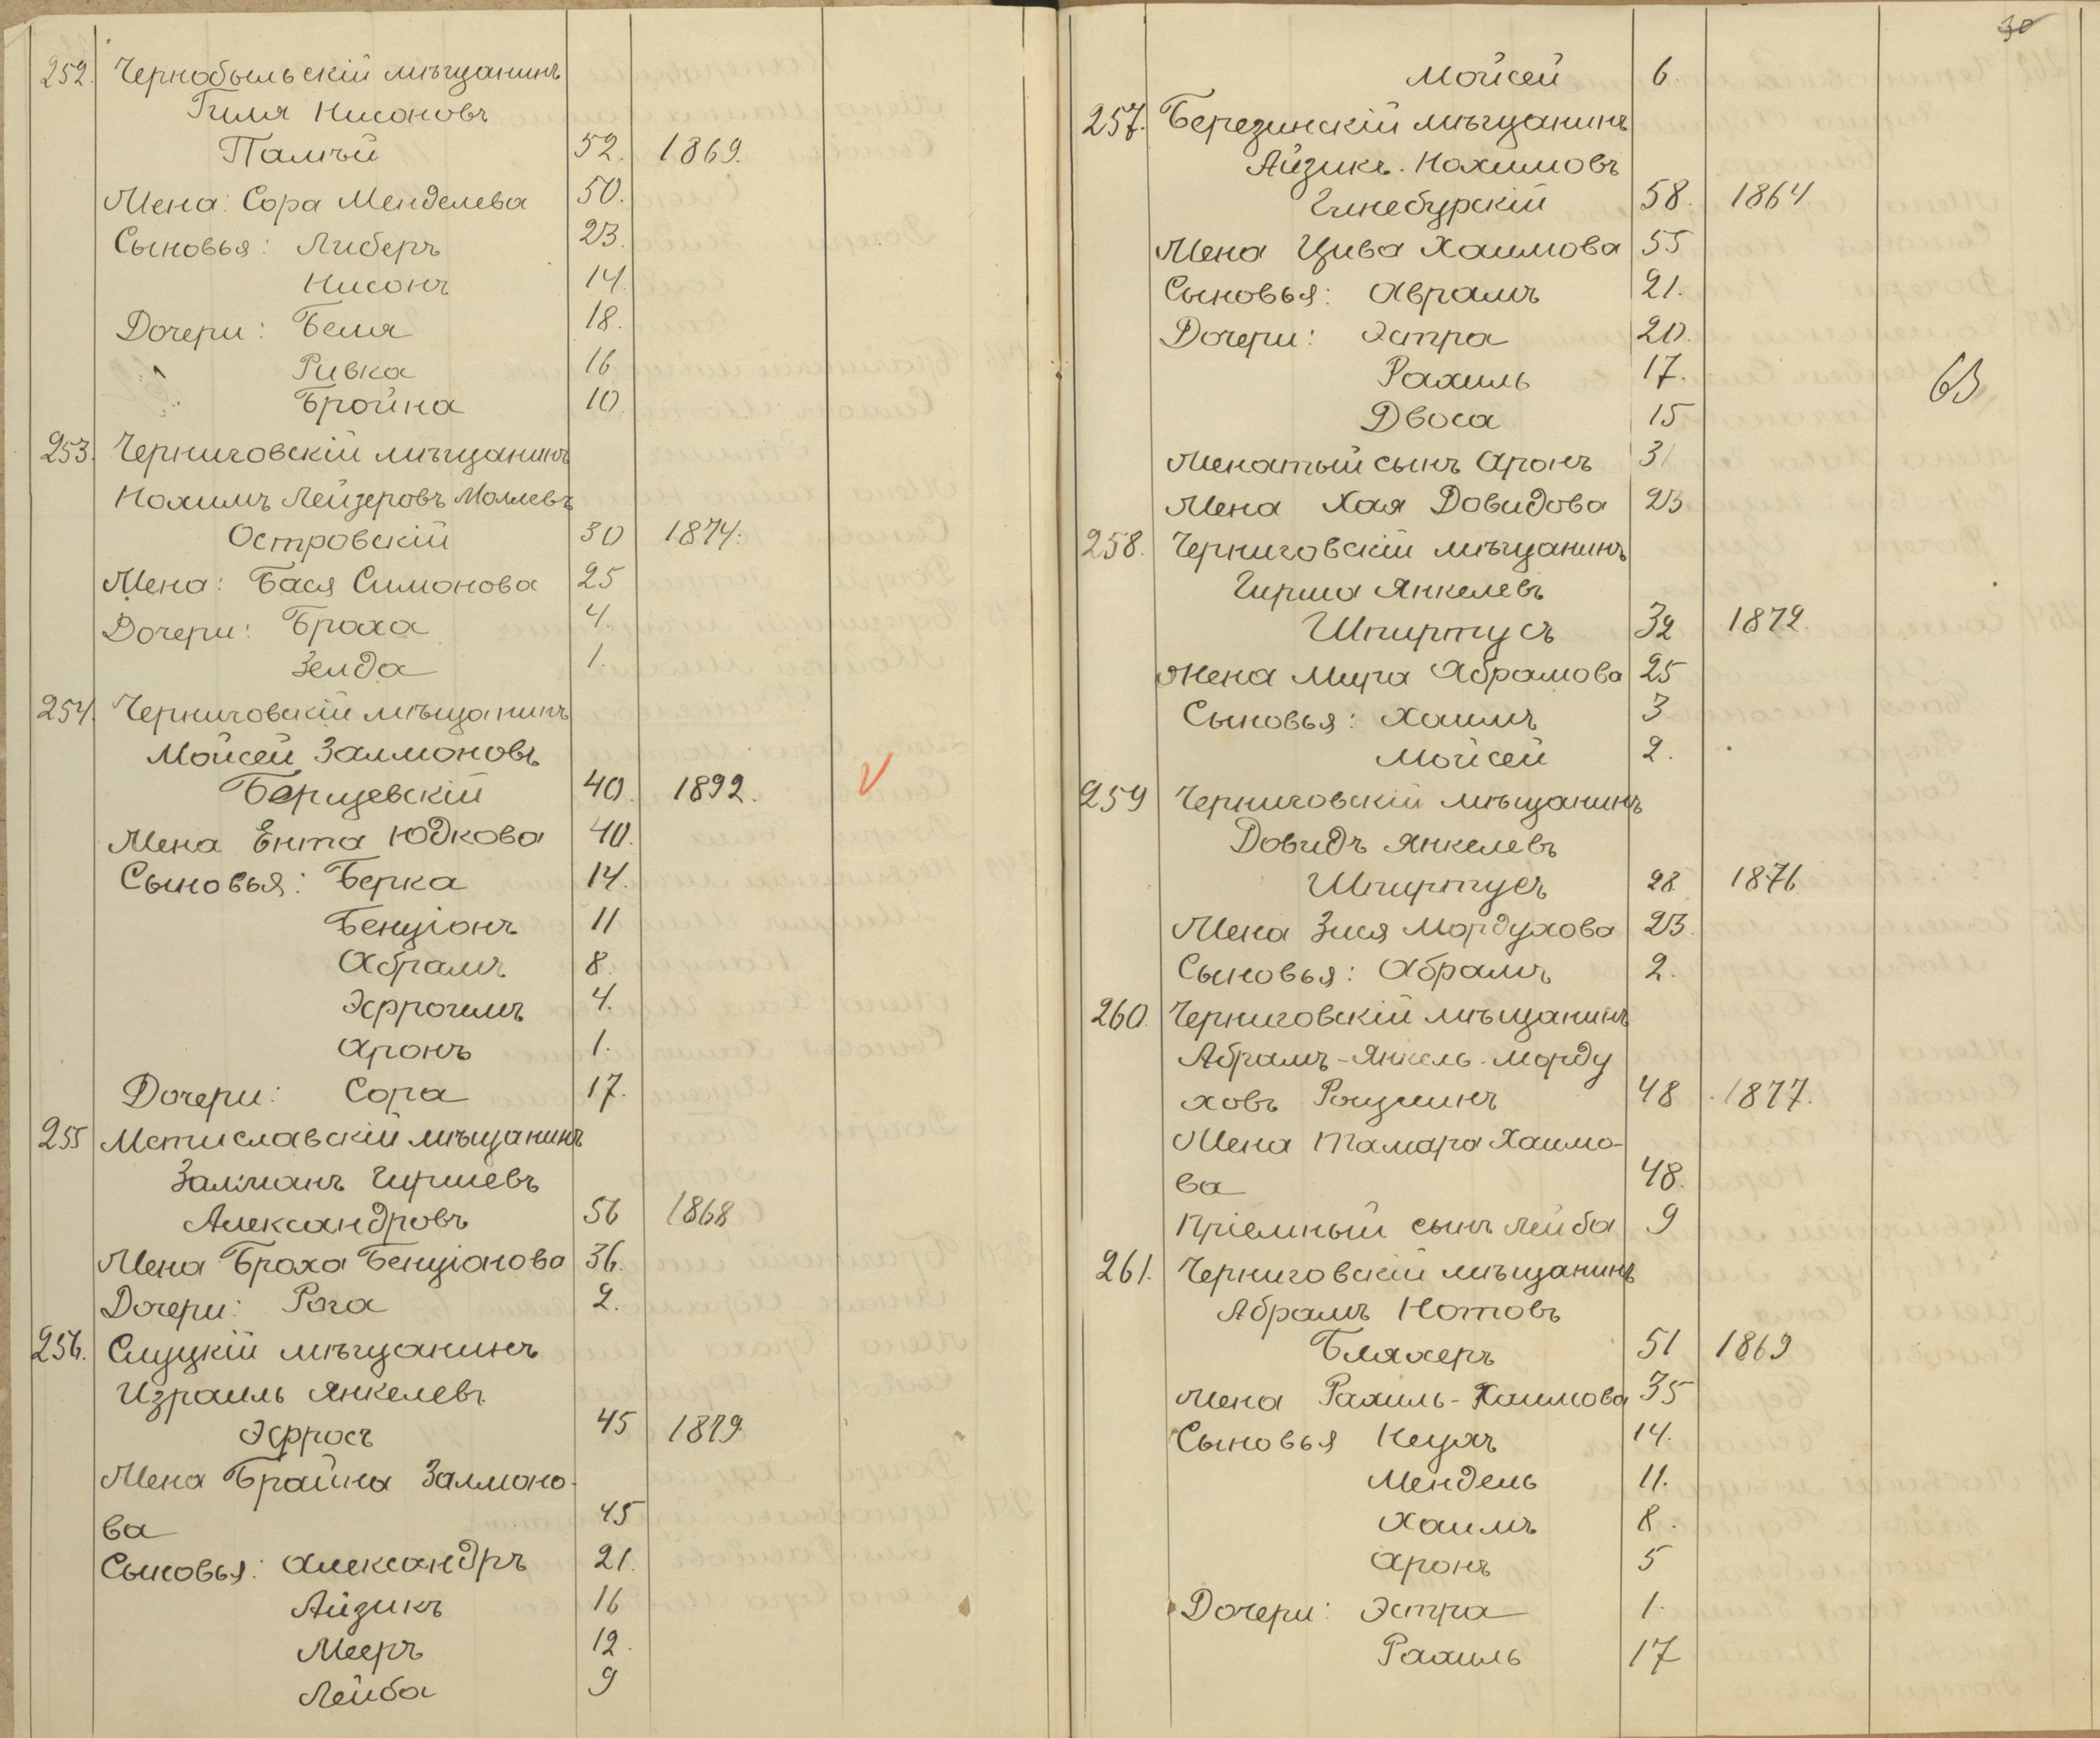 252. Чернобыльскій мѣщанинъ
Гиля Нисоновъ
Палѣй 52. 1869.
Жена: Сора Менделева 50.
Сыновья: Либеръ 23.
Нисонъ 14.
Дочери: Беля 18.
Ривка 16
Бройна 10.
253. Черниговскій мѣщанинъ
Нохимъ Лейзеровъ
Островскій 30 1874.
Жена: Бася Симонова 25
Дочери: Броха 4.
Зелда 1.
254. Черниговскій мѣщанинъ
Мойсей Залмоновъ
Борщевскій 40. 1892. V
Жена Ента Юдкова 40.
Сыновья: Берка 14.
Бенціонъ 11
Абрамъ 8.
Эфроимъ 4.
Аронъ 1.
Дочери: Сора 17.
255 Мстиславскій мѣщанинъ
Залманъ Гиршевъ
Александровъ 56 1868
Жена Броха Бенціонова 36.
Дочери: Рога 2.
256. Слуцкій мѣщанинъ
Израиль Янкелевъ
Эфросъ 45 1879.
Жена Брайна Залмоно-
ва 45
Сыновья: Александръ 21.
Айзикъ 16
Мееръ 12.
Лейба 9
30
Мойсей 6.
257. Березинскій мѣщанинъ
Айзикъ Нохимовъ
Гинсбурскій 58. 1864
Жена Цива Хаимова 55
Сыновья: Аврамъ 21.
Дочери: Эстра 20.
Рахиль 17.
63
Двоса 15
Женатый сынъ Аронъ 31
Жена Хая Довидова 23
258. Черниговскій мѣщанинъ
Гирша Янкелевъ
Шпиртусъ 32 1872.
Жена Мира Абрамова 25
Сыновья: Хаимъ 3
Мойсей 2.
259 Черниговскій мѣщанинъ
Довидъ Янкелевъ
Шпиртусъ 28 1876
Жена Зися Мордухова 23.
Сыновья: Абрамъ 2.
260. Черниговскій мѣщанинъ
Абрамъ-Янкель-Морду
ховъ Рощинъ 48 1877.
Жена Тамара Хаимо-
ва 48.
Пріемный сынъ Лейба 9
261. Черниговскій мѣщанинъ
Абрамъ Нотовъ
Бляхеръ 51 1869
Жена Рахиль-Хаимова 35
Сыновья Неухъ 14.
Мендель 11.
Хаимъ 8.
Аронъ 5
Дочери: Эстра 1.
Рахиль 17